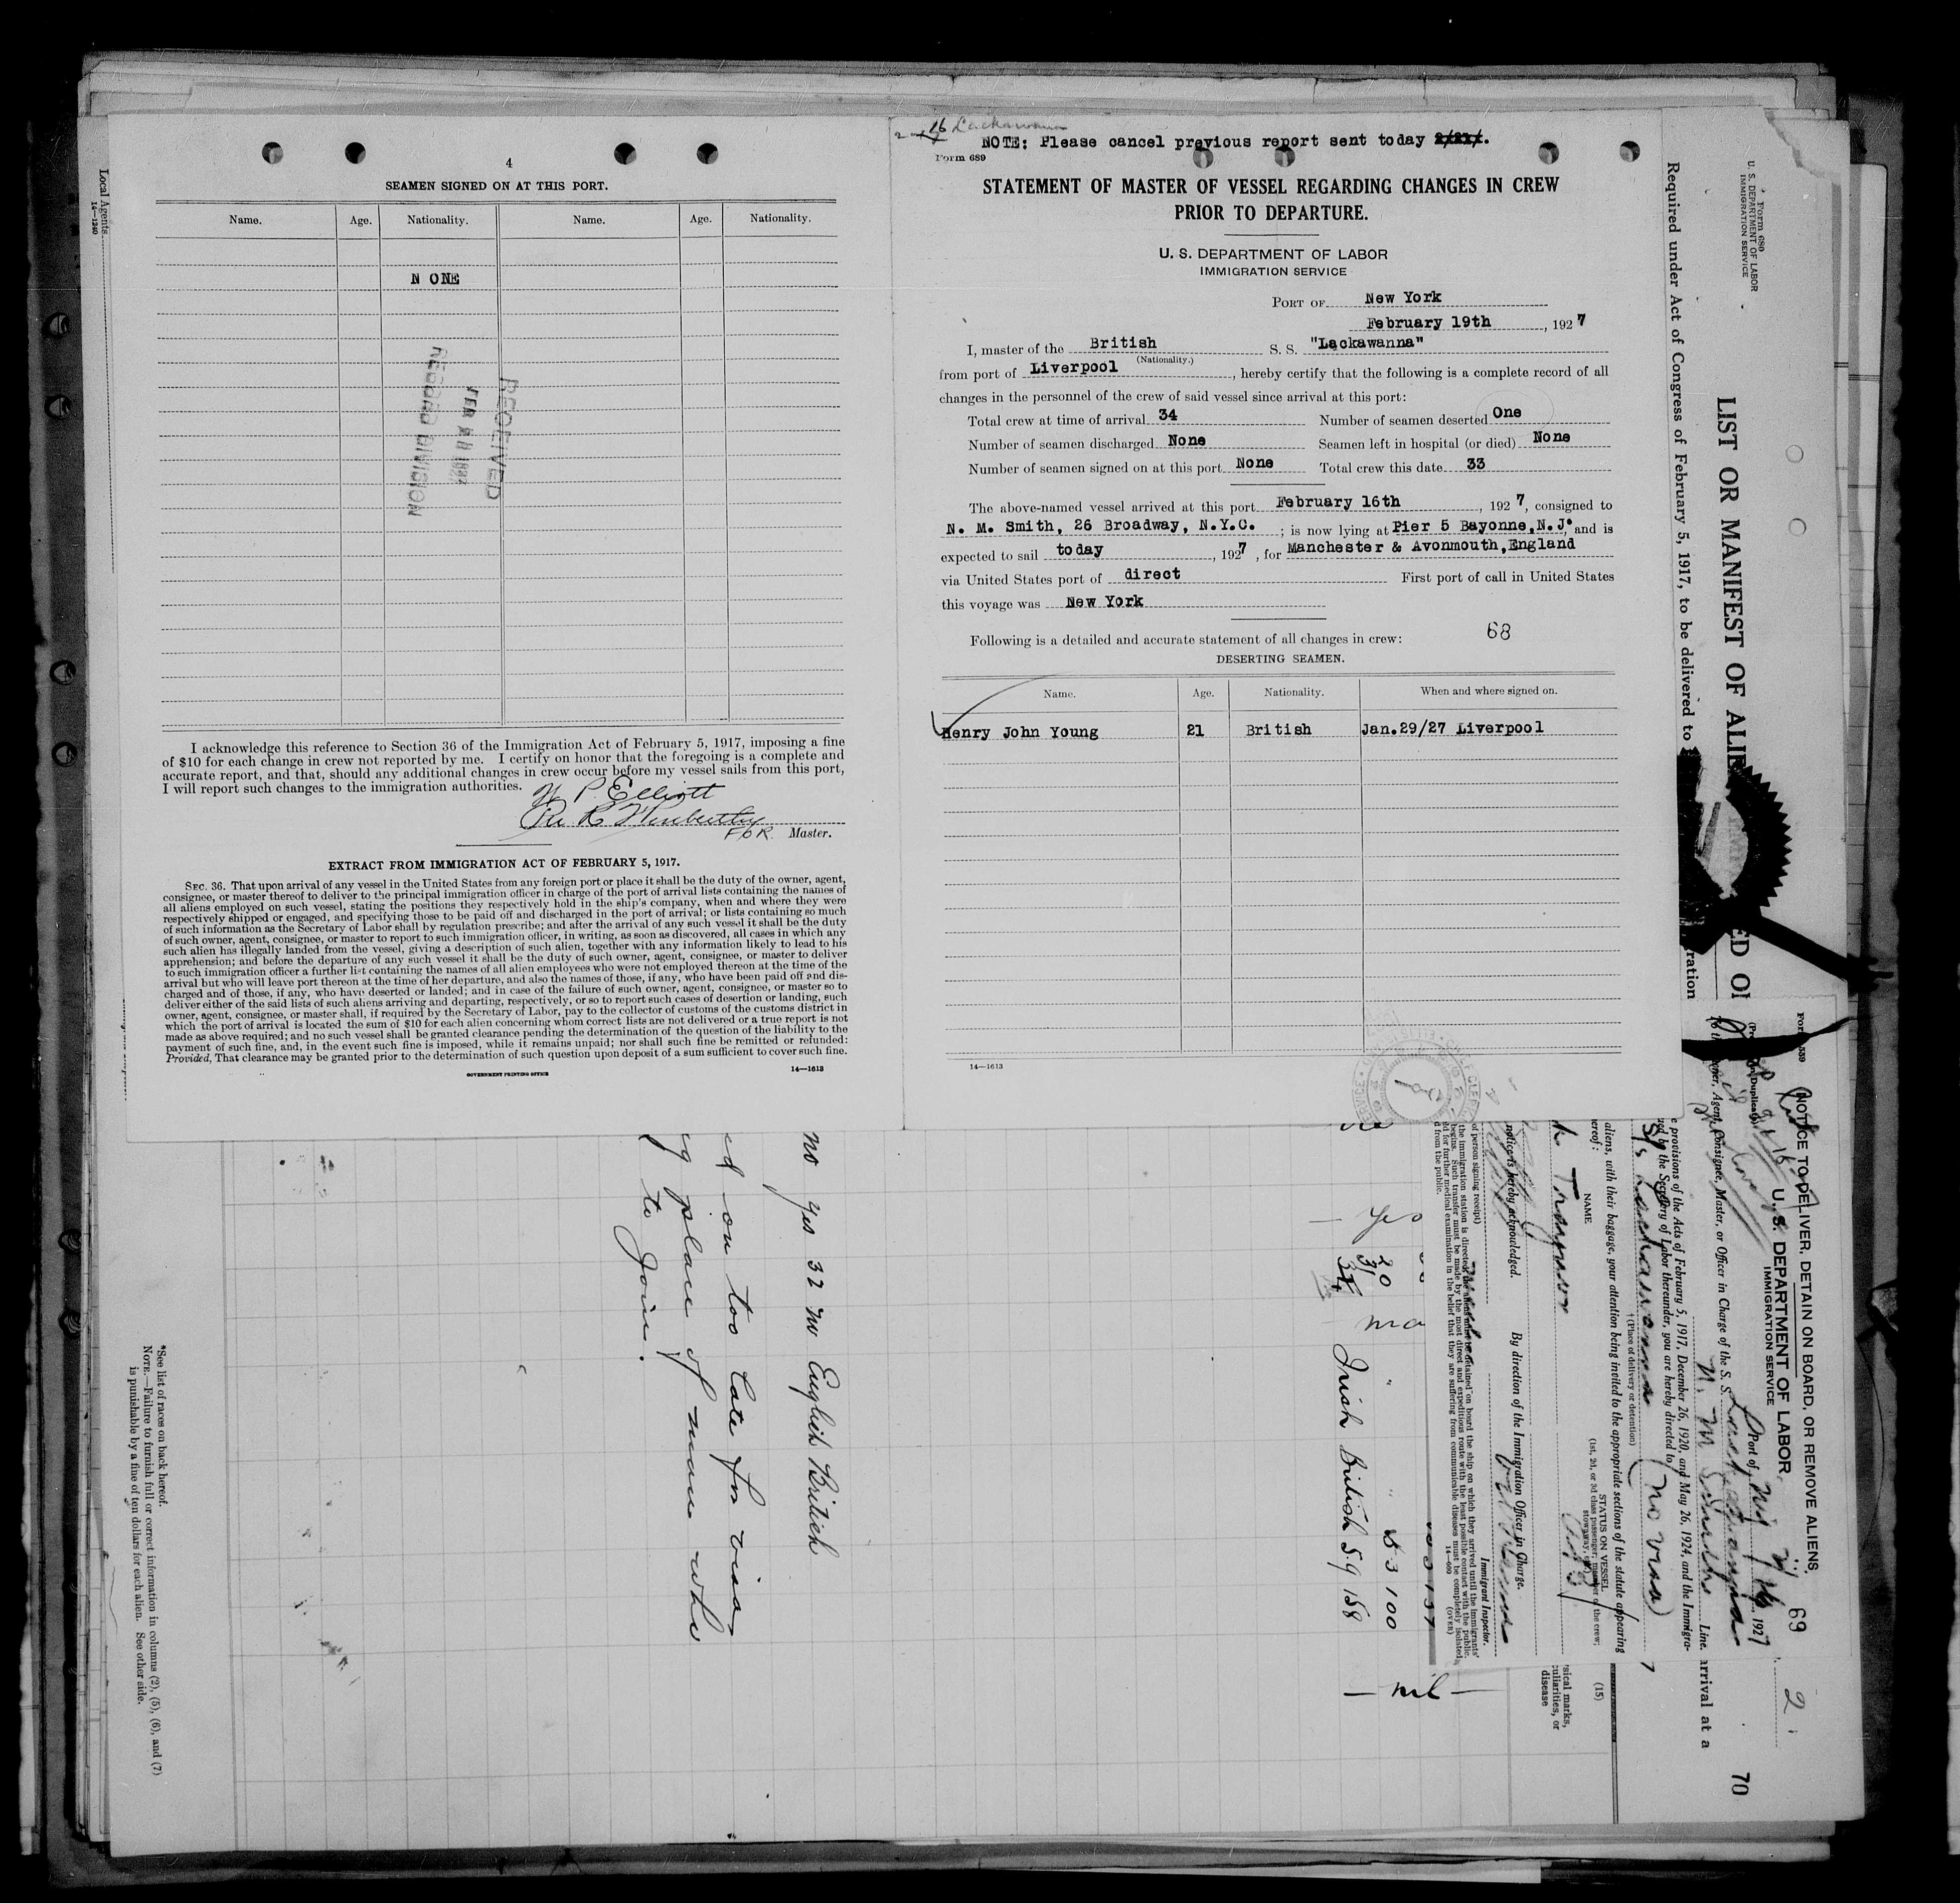 Local Agents
14—1240
4
SEAMEN SIGNED ON AT THIS PORT.
Name. Age. Nationality. Name. Age. Nationality.
N ONE
RECEIVED
FEB
RECORD DIVISION
I acknowledge this reference to Section 36 of the Immigration Act of February 5, 1917, imposing a fine
of $10 for each change in crew not reported by me. I certify on honor that the foregoing is a complete and
accurate report, and that, should any additional changes in crew occur before my vessel sails from this port,
I will report such changes to the immigration authorities.
P Elliott
FOR Master.
EXTRACT FROM IMMIGRATION ACT OF FEBRUARY 5, 1917.
SEC. 36. That upon arrival of any vessel in the United States from any foreign port or place it shall be the duty of the owner, agent,
consignee, or master thereof to deliver to the principal immigration officer in charge of the port of arrival lists containing the names of
all aliens employed on such vessel, stating the positions they respectively hold in the ship's company, when and where they were
respectively shipped or engaged, and specifying those to be paid off and discharged in the port of arrival; or lists containing so much
of such information as the Secretary of Labor shall by regulation prescribe; and after the arrival of any such vessel it shall be the duty
of such owner, agent, consignee, or master to report to such immigration officer, in writing, as soon as discovered, all cases in which any
such alien has illegally landed from the vessel, giving a description of such alien, together with any information likely to lead to his
apprehension; and before the departure of any such vessel it shall be the duty of such owner, agent, consignee, or master to deliver
to such immigration officer a further list containing the names of all alien employees who were not employed thereon at the time of the
arrival but who will leave port thereon at the time of her departure, and also the names of those, if any, who have been paid off and dis-
charged and of those, if any, who have deserted or landed; and in case of the failure of such owner, agent, consignee, or master so to
deliver either of the said lists of such aliens arriving and departing, respectively, or so to report such cases of desertion or landing, such
owner, agent, consignee, or master shall, if required by the Secretary of Labor, pay to the collector of customs of the customs district in
which the port of arrival is located the sum of $10 for each alien concerning whom correct lists are not delivered or a true report is not
made as above required; and no such vessel shall be granted clearance pending the determination of the question of the liability to the
payment of such fine, and, in the event such fine is imposed, while it remains unpaid; nor shall such fine be remitted or refunded:
Provided, That clearance may be granted prior to the determination of such question upon deposit of a sum sufficient to cover such fine.
GOVERNMENT PRINTING OFFICE
14—1613
16 Lackawanna
NOTE: Please cancel previous report sent today 2/21/.
Form 689
STATEMENT OF MASTER OF VESSEL REGARDING CHANGES IN CREW
PRIOR TO DEPARTURE.
U. S. DEPARTMENT OF LABOR
IMMIGRATION SERVICE
PORT OF New York
February 19th, 1927
I, master of the British S. S. "Lackawanna"
(Nationality.)
from port of Liverpool, hereby certify that the following is a complete record of all
changes in the personnel of the crew of said vessel since arrival at this port:
Total crew at time of arrival 34 Number of seamen deserted One
Number of seamen discharged None Seamen left in hospital (or died) None
Number of seamen signed on at this port None Total crew this date 33
The above-named vessel arrived at this port February 16th, 1927, consigned to
N. M. Smith, 26 Broadway, N.Y.C. ; is now lying at Pier 5 Bayonne,N.J. and is
expected to sail today, 1927, for Manchester & Avonmouth,England
via United States port of direct First port of call in United States
this voyage was New York
Following is a detailed and accurate statement of all changes in crew: 68
DESERTING SEAMEN.
Name. Age. Nationality. When and where signed on.
Henry John Young 21 British Jan.29/27 Liverpool
14—1613
Form 680
U. S. DEPARTMENT OF LABOR
IMMIGRATION SERVICE
LIST OR MANIFEST OF ALIE
ED O
Required under Act of Congress of February 5, 1917, to be delivered to
ration
arrival at a
NOTICE TO DELIVER, DETAIN ON BOARD, OR REMOVE ALIENS
69
U. S. DEPARTMENT OF LABOR
IMMIGRATION SERVICE
Port of 1927
Agent, Consignee, Master, or Officer in Charge of the S. S. Lackawanna
N. M. Smith Line.
e provisions of the Acts of February 5, 1917, December 26, 1920, and May 26, 1924, and the Immigra-
ned by the Secretary of Labor thereunder, you are hereby directed to
S/S Lackawanna (no visa)
† (Place of delivery or detention)
aliens, with their baggage, your attention being invited to the appropriate sections of the statute appearing
ereof:
NAME
STATUS ON VESSEL
(1st, 2d, or 3d class passenger, member of the crew,
Traynor
notice is hereby acknowledged.
By direction of the Immigration Officer in Charge.
Immigrant Inspector.
of person signing receipt)
14—600 (OVER)
(15)
sical marks,
culiarities, or
disease
2
70
yes
20
31
Irish British 5-9 158
5 3 100
— nil —
no yes 32 m English British
ed on too late for visa
g place of man who
to join.
*See list of races on back hereof.
NOTE.—Failure to furnish full or correct information in columns (2), (5), (6), and (7)
is punishable by a fine of ten dollars for each alien. See other side.